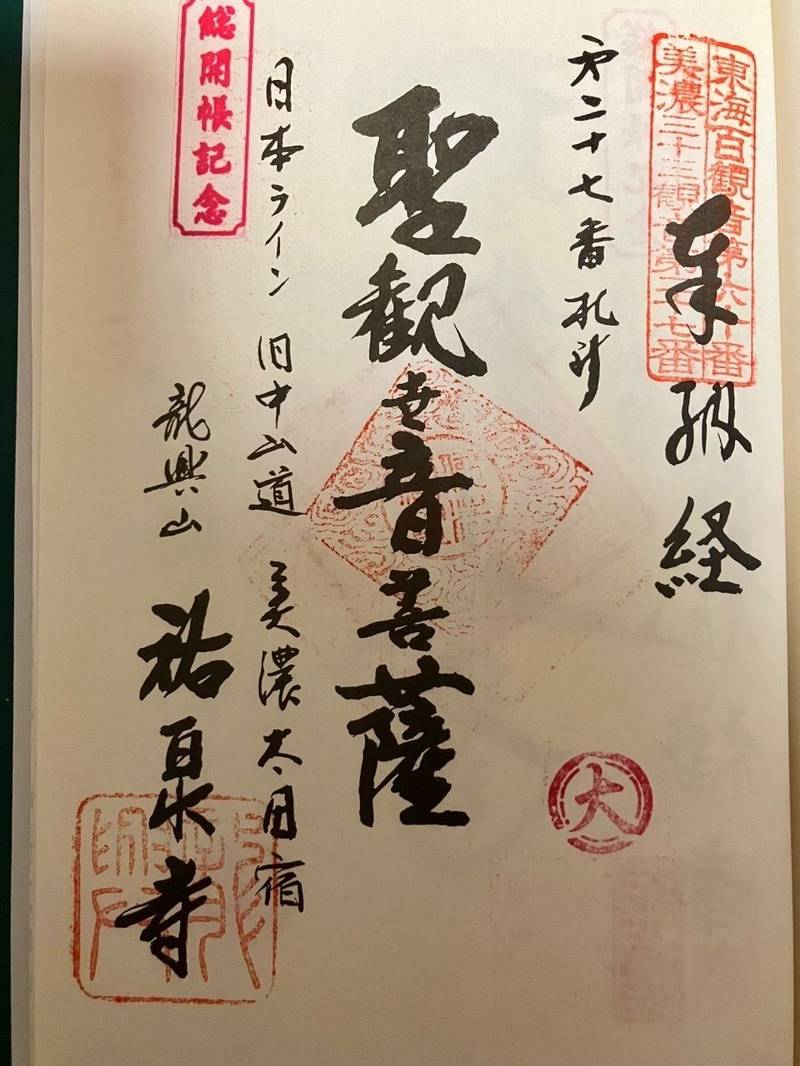 東海百観音第六十番
美濃三十三観音第二十七番
奉納経
第二十七番札所
聖観世音菩薩
大
日本ライン 旧中山道 美濃太田宿
総開帳記念
龍興山 祐泉寺